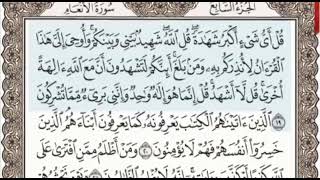 سُورَةُ الأَنْعَامِ
الجُزْءُ السَّابِعُ
قُلْ أَىُّ شَىْءٍ أَكْبَرُ شَهَٰدَةً ۖ قُلِ ٱللَّهُ ۖ شَهِيدٌۢ بَيْنِى وَبَيْنَكُمْ ۚ وَأُوحِىَ إِلَىَّ هَٰذَا
ٱلْقُرْءَانُ لِأُنذِرَكُم بِهِۦ وَمَنۢ بَلَغَ ۚ أَئِنَّكُمْ لَتَشْهَدُونَ أَنَّ مَعَ ٱللَّهِ ءَالِهَةً
أُخْرَىٰ ۚ قُل لَّآ أَشْهَدُ ۚ قُلْ إِنَّمَا هُوَ إِلَٰهٌ وَٰحِدٌ وَإِنَّنِى بَرِىٓءٌ مِّمَّا تُشْرِكُونَ ١٩
ٱلَّذِينَ ءَاتَيْنَٰهُمُ ٱلْكِتَٰبَ يَعْرِفُونَهُۥ كَمَا يَعْرِفُونَ أَبْنَآءَهُمُ ۘ ٱلَّذِينَ
خَسِرُوٓا۟ أَنفُسَهُمْ فَهُمْ لَا يُؤْمِنُونَ ٢٠ وَمَنْ أَظْلَمُ مِمَّنِ ٱفْتَرَىٰ عَلَى